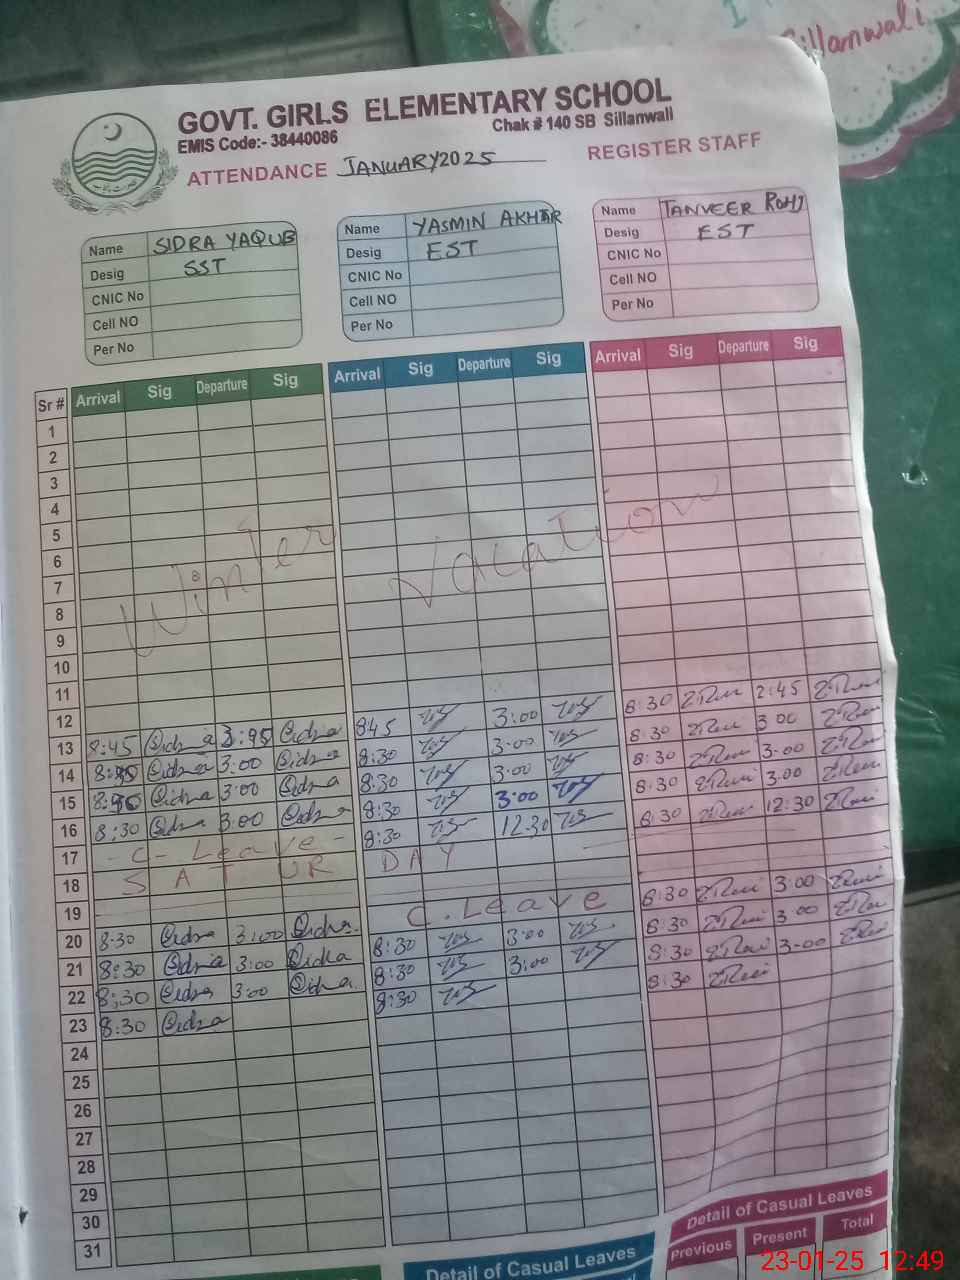 Sillanwali
GOVT. GIRLS ELEMENTARY SCHOOL
EMIS Code:- 38440086
Chak # 140 SB Sillanwali
ATTENDANCE JANUARY2025 REGISTER STAFF
Name SIDRA YAQUB
Desig SST
CNIC No
Cell NO
Per No
Name YASMIN AKHTAR
Desig EST
CNIC No
Cell NO
Per No
Name TANVEER ROHI
Desig EST
CNIC No
Cell NO
Per No
Sr # Arrival Sig Departure Sig Arrival Sig Departure Sig Arrival Sig Departure Sig
1
2
3
4
5
6
7
8
9
10
11
Winter Vacation
12
13 8:45 Sidra 845 3:00 8:30 2:45
14 Sidra 3:00 Sidra 8:30 3:00 8:30 3 00
15 Sidra 3:00 Sidra 8:30 3:00 8:30 3:00
16 8:30 Sidra 3:00 Sidra 8:30 3:00 8:30 3:00
17 - C - Leave - 8:30 12:30 8:30 12:30
18 SATURDAY
19
20 8:30 Sidra 3:00 Sidra C. Leave 8:30 3:00
21 8:30 Sidra 3:00 Sidra 8:30 3:00 8:30 3:00
22 8:30 Sidra 3:00 Sidra 8:30 3:00 8:30 3:00
23 8:30 Sidra 8:30 8:30
24
25
26
27
28
29
30
31
Detail of Casual Leaves
Detail of Casual Leaves
Previous Present Total
23-01-25 12:49